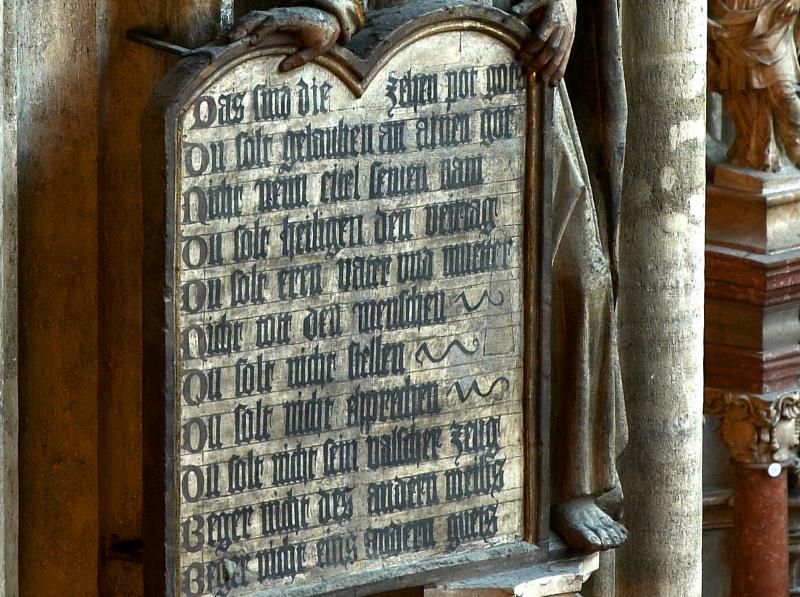 Das sind die Zehen pot gotz
Du solt gelauben an ainen got
Nicht nenn eitel seinen nam
Du solt heiligen den veirtag
Du solt eren vater und mueter
Nicht tött den menschen
Du solt nicht stellen
Du solt nicht eprechen
Du solt nicht sein valscher zeug
Beger nicht des andern weibs
Beger nicht eins andern guets